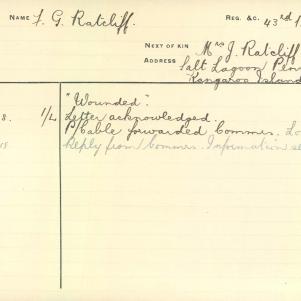 NAME F. G. Ratcliff. REG. &C. 43rd
NEXT OF KIN Mrs J. Ratcliff
ADDRESS Salt Lagoon Pen
Kangaroo Island
"Wounded".
8. 1/4 Letter acknowledged.
P/Cable forwarded Commrs. Lo
Reply from Commrs. Information se